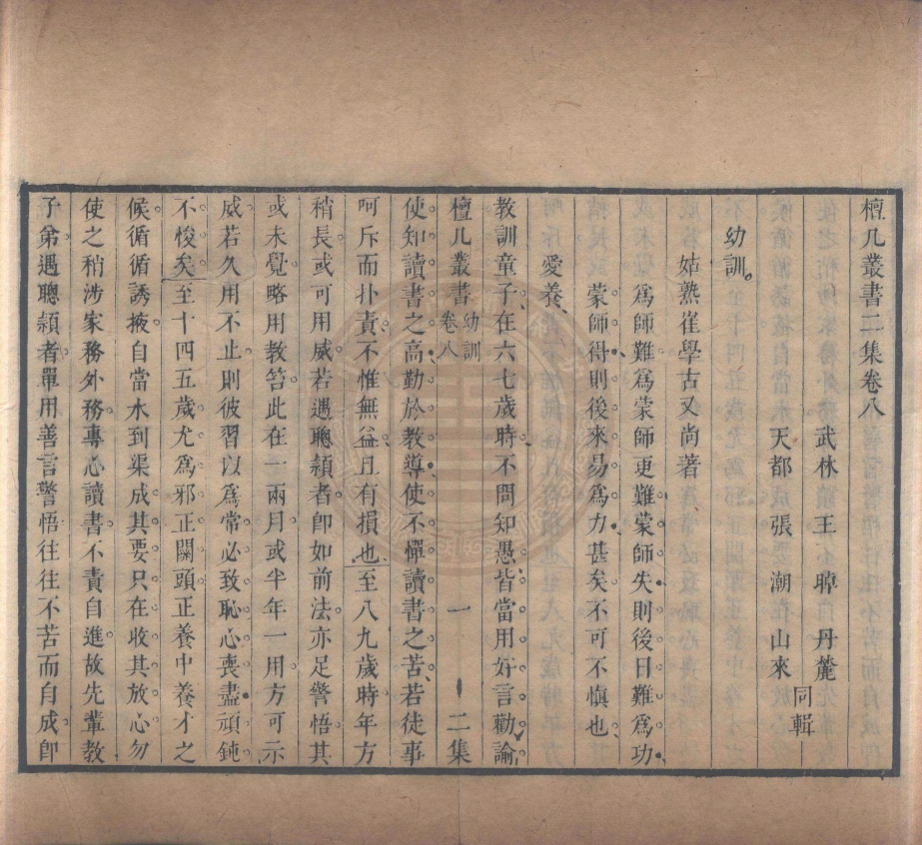 檀几叢書二集卷八
武林王晫丹麓
天都張潮山來
同輯
幼訓
姑熟崔學古又尚著
爲師難爲蒙師更難蒙師失則後日難爲功
蒙師得則後來易爲力甚矣不可不慎也
愛養
教訓童子在六七歲時不問知愚皆當用好言勸諭
檀几叢書
幼訓
卷八
一
二集
使知讀書之高勤於教導使不憚讀書之苦若徒事
呵斥而扑責不惟無益且有損也至八九歲時年方
稍長或可用威若遇聰頴者卽如前法亦足警悟其
或未覺略用教笞此在一兩月或半年一用方可示
威若久用不止則彼習以爲常必致恥心喪盡頑鈍
不悛矣至十四五歲尤爲邪正關頭正養中養才之
候循循誘掖自當水到渠成其要只在收其放心勿
使之稍涉家務外務專心讀書不責自進故先輩教
子弟遇聰頴者單用善言警悟往往不苦而自成卽